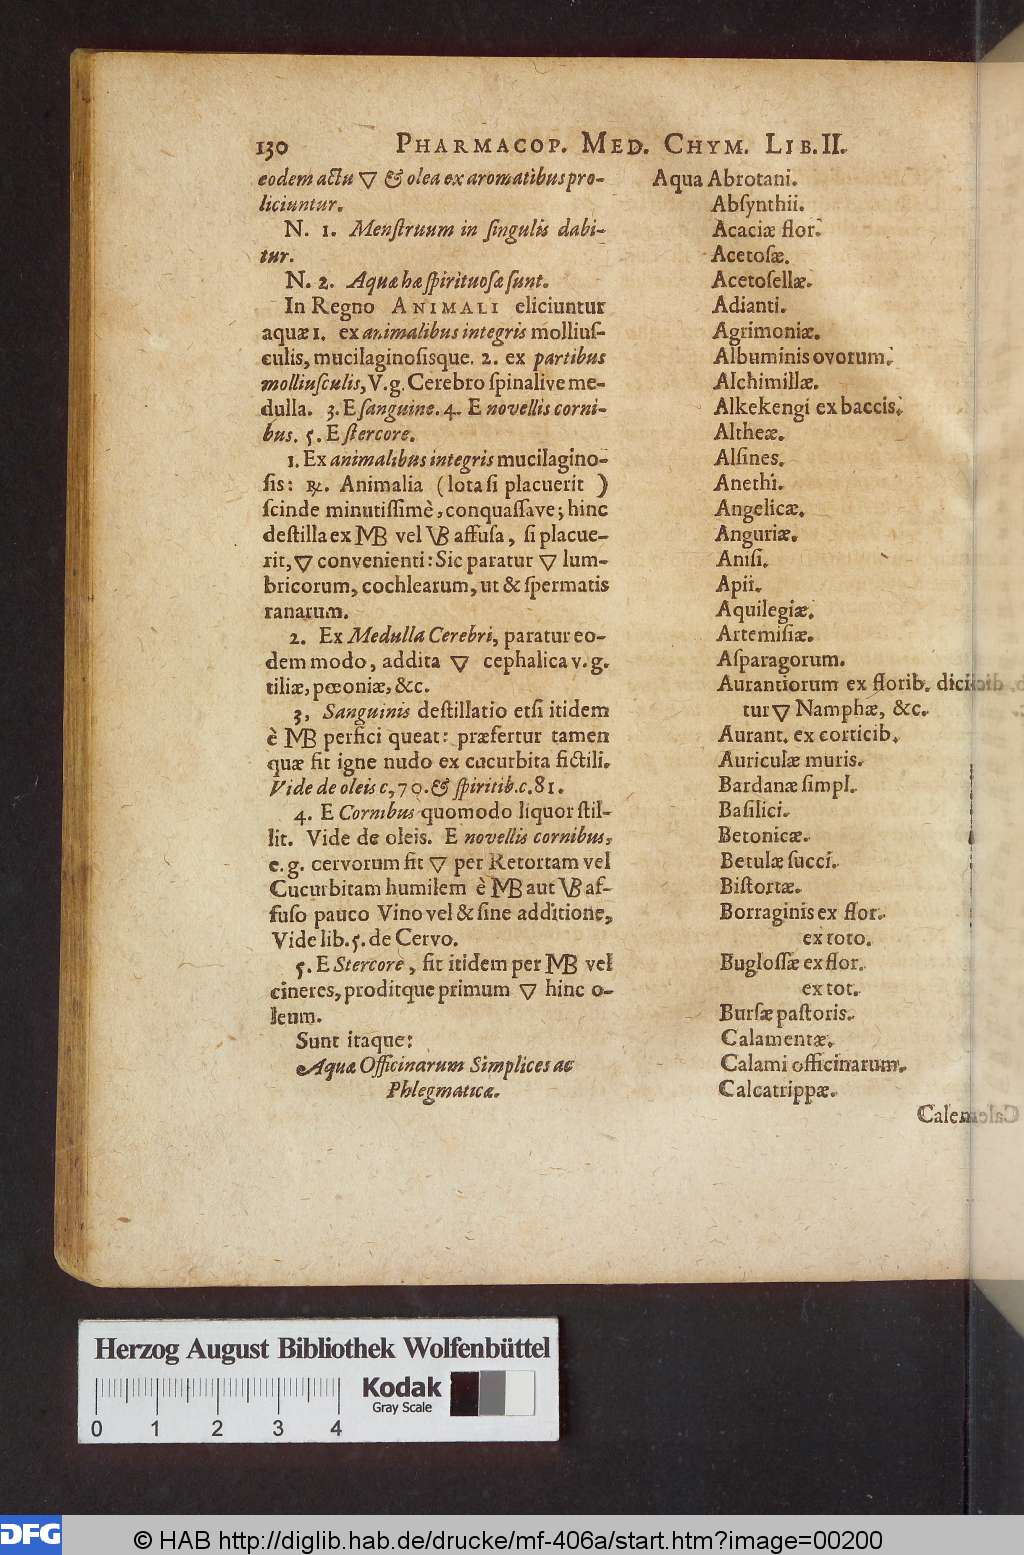 130 PHARMACOP. MED. CHYM. LIB. II.
eodem actu 🜄 & olea ex aromatibus pro-
liciuntur.
N. 1. Menſtruum in ſingulis dabi-
tur.
N. 2. Aquæ hæ ſpirituoſæ ſunt.
In Regno ANIMALI eliciuntur
aquæ 1. ex animalibus integris molliuſ-
culis, mucilaginoſisque. 2. ex partibus
molliuſculis, V. g. Cerebro ſpinalive me-
dulla. 3. E ſanguine. 4. E novellis corni-
bus. 5. E ſtercore.
1. Ex animalibus integris mucilagino-
ſis: ℞. Animalia (lota ſi placuerit )
ſcinde minutiſſimè, conquaſſave; hinc
deſtilla ex MB vel VB affuſa, ſi placue-
rit, 🜄 convenienti: Sic paratur 🜄 lum-
bricorum, cochlearum, ut & ſpermatis
ranarum.
2. Ex Medulla Cerebri, paratur eo-
dem modo, addita 🜄 cephalica v. g.
tiliæ, pœoniæ, &c.
3, Sanguinis deſtillatio etſi itidem
è MB perfici queat: præfertur tamen
quæ fit igne nudo ex cucurbita fictili.
Vide de oleis c, 70. & ſpiritib. c. 81.
4. E Cornibus quomodo liquor ſtil-
lit. Vide de oleis. E novellis cornibus,
e. g. cervorum fit 🜄 per Retortam vel
Cucurbitam humilem è MB aut VB af-
fuſo pauco Vino vel & ſine additione,
Vide lib. 5. de Cervo.
5. E Stercore, fit itidem per MB vel
cineres, proditque primum 🜄 hinc o-
leum.
Sunt itaque:
Aquæ Officinarum Simplices ac
Phlegmaticæ.
Aqua Abrotani.
Abſynthii.
Acaciæ flor.
Acetoſæ.
Acetoſellæ.
Adianti.
Agrimoniæ.
Albuminis ovorum.
Alchimillæ.
Alkekengi ex baccis.
Altheæ.
Alſines.
Anethi.
Angelicæ.
Anguriæ.
Aniſi.
Apii.
Aquilegiæ.
Artemiſiæ.
Aſparagorum.
Aurantiorum ex florib. dici-
tur 🜄 Namphæ, &c.
Aurant. ex corticib.
Auriculæ muris.
Bardanæ ſimpl.
Baſilici.
Betonicæ.
Betulæ ſucci.
Biſtortæ.
Borraginis ex flor.
ex toto.
Bugloſſæ ex flor.
ex tot.
Burſæ paſtoris.
Calamentæ.
Calami officinarum.
Calcatrippæ.
Calen
Herzog August Bibliothek Wolfenbüttel
Kodak
Gray Scale
0 1 2 3 4
DFG © HAB http://diglib.hab.de/drucke/mf-406a/start.htm?image=00200